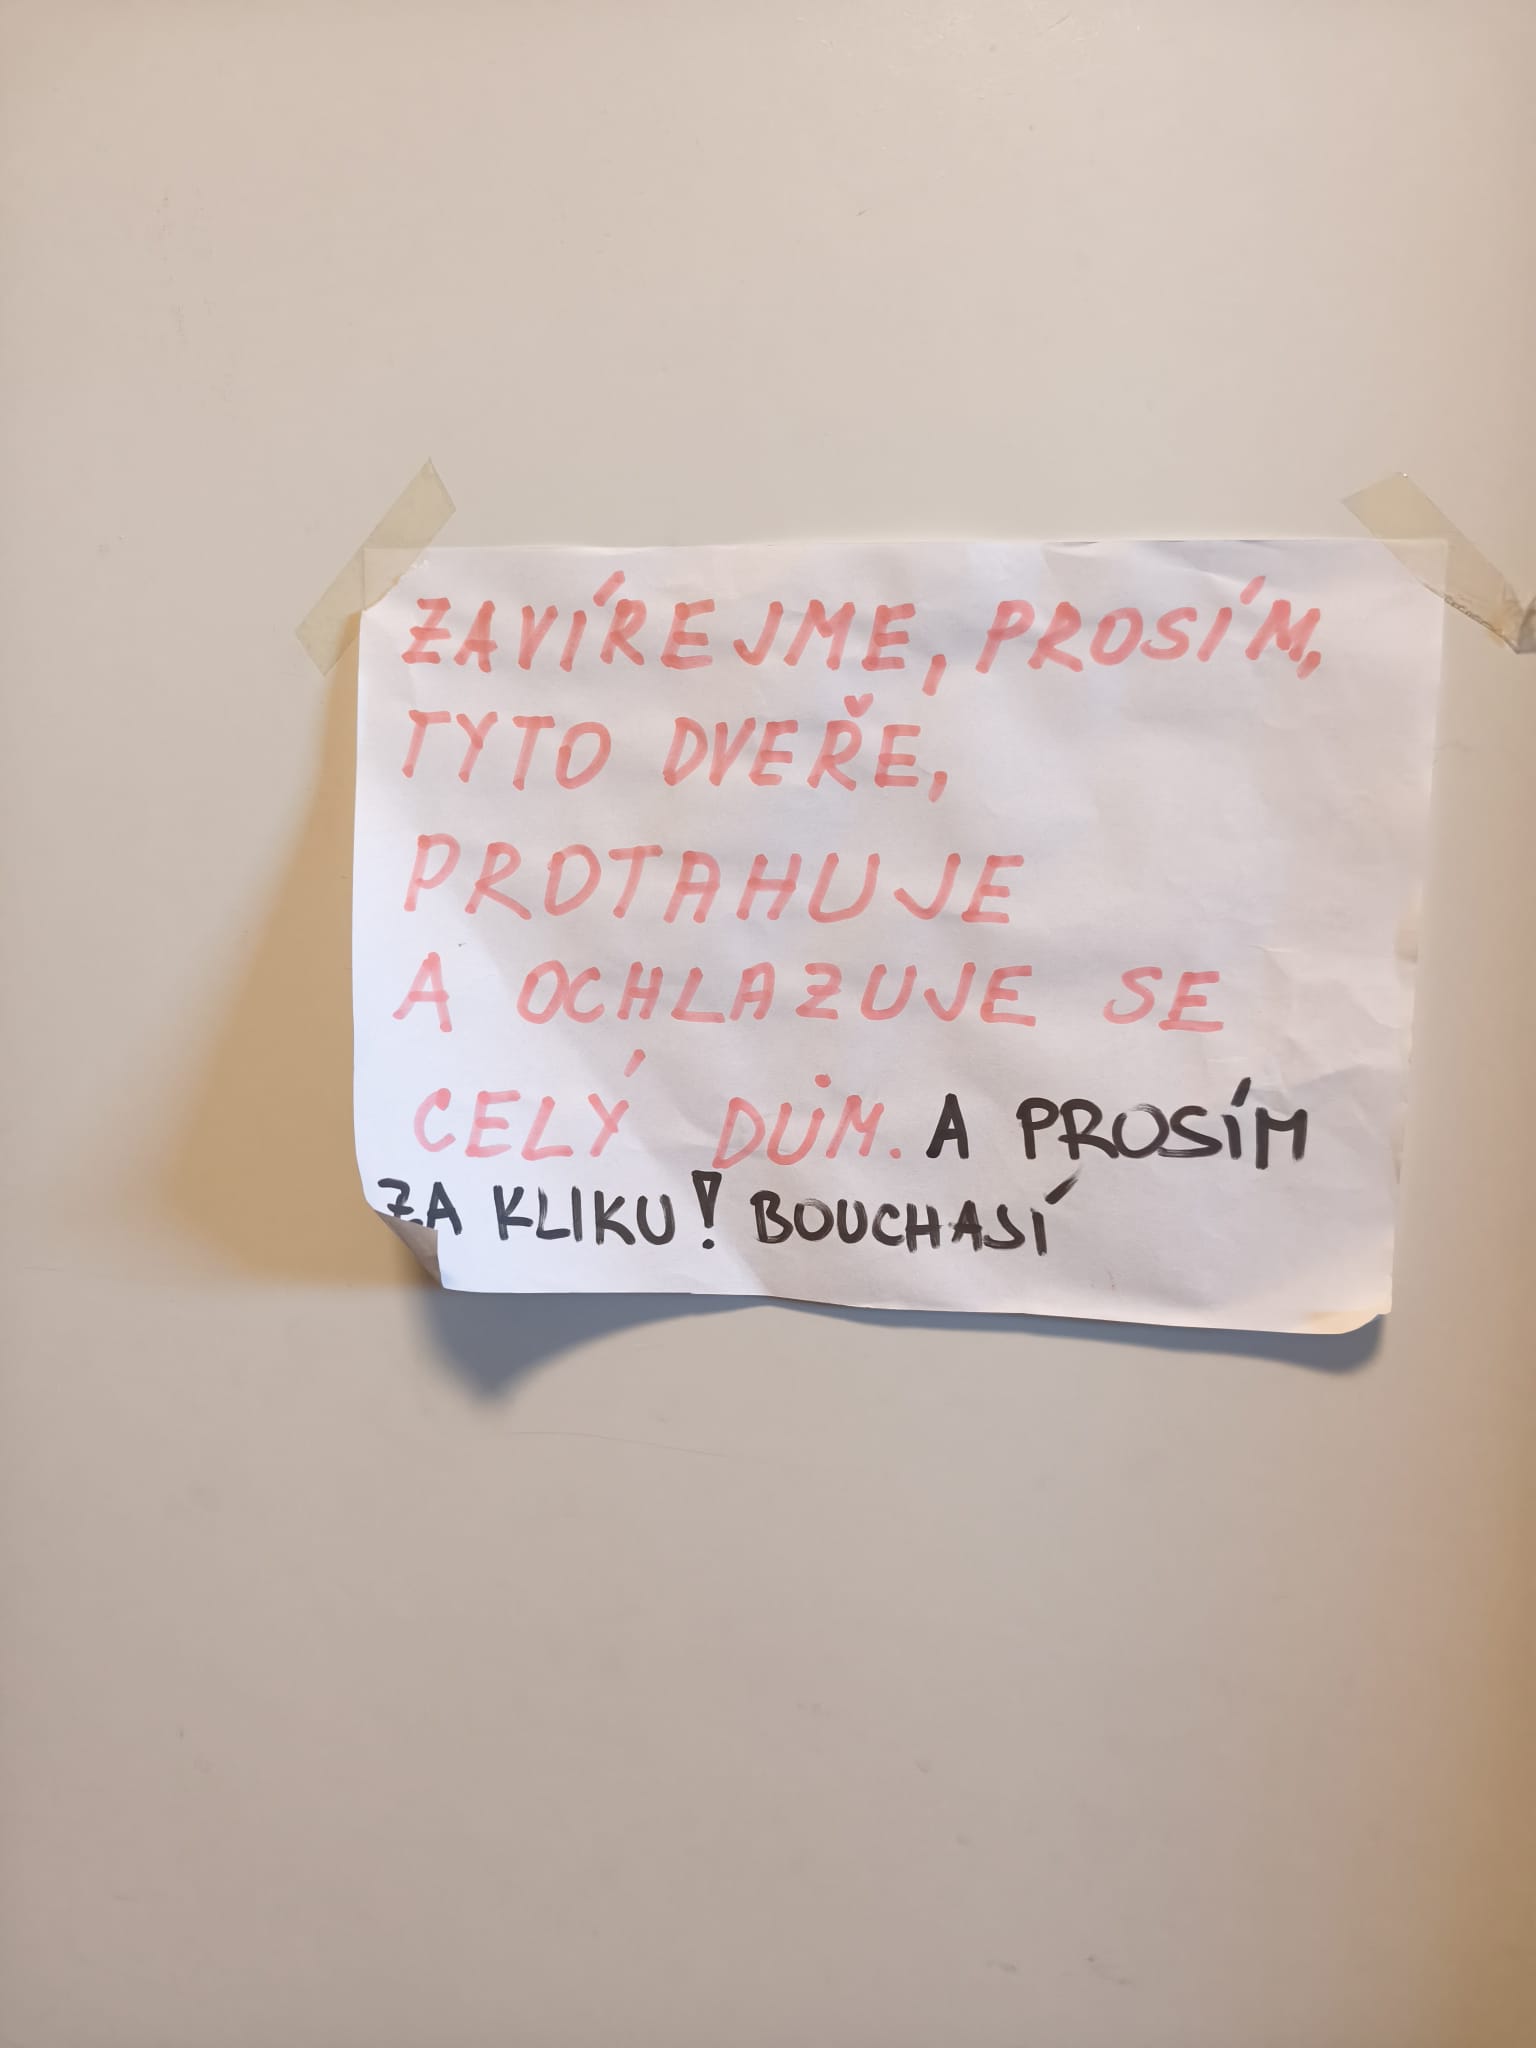 ZAVÍREJME, PROSÍM,
TYTO DVEŘE,
PROTAHUJE
A OCHLAZUJE SE
CELÝ DŮM. A PROSÍM
ZA KLIKU! BOUCHASÍ